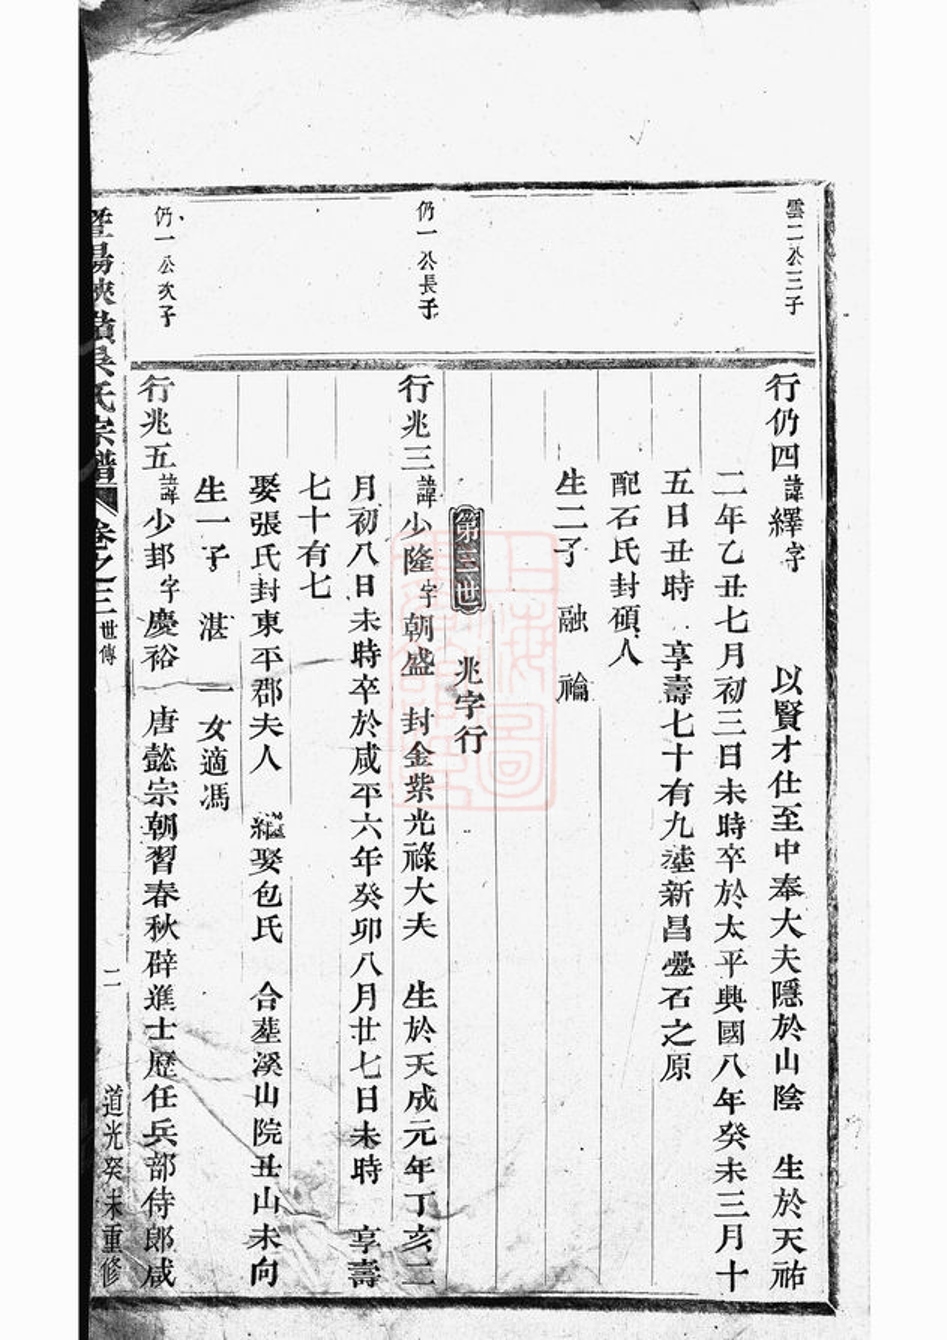 雲二公三子
行仍四諱繹字 以賢才仕至中奉大夫隱於山陰 生於天祐
二年乙丑七月初三日未時卒於太平興國八年癸未三月十
五日丑時 享壽七十有九塟新昌疊石之原
配石氏封碩人
生二子 融 論
第三世 兆字行
仍一公長子
行兆三諱少隆字朝盛 封金紫光祿大夫 生於天成元年丁亥二
月初八日未時卒於咸平六年癸卯八月廿七日未時 享壽
七十有七
娶張氏封東平郡夫人 繼娶包氏 合塟溪山院丑山未向
生一子 湛 一女適馮
仍一公次子
行兆五諱少邽字慶裕 唐懿宗朝習春秋辟進士歷任兵部侍郎咸
暨陽 吳氏宗譜 卷之三 世傳 二 道光癸未重修